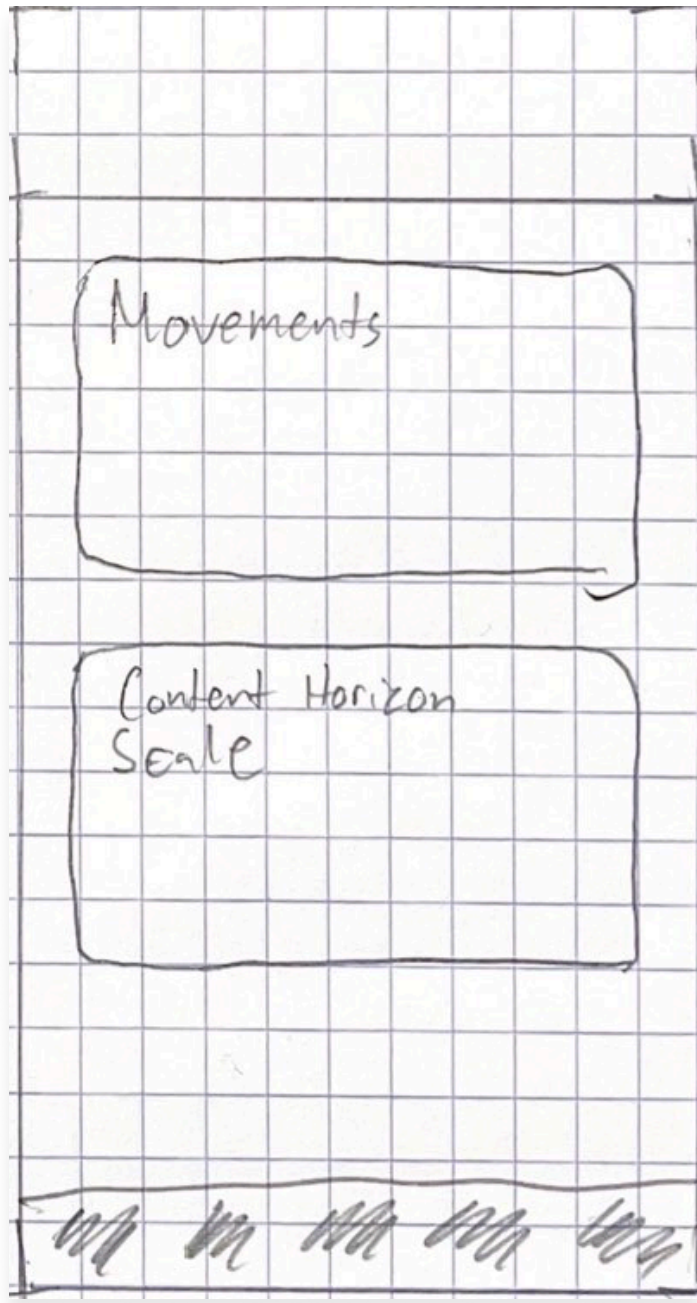 Movements
Content Horizon
Scale